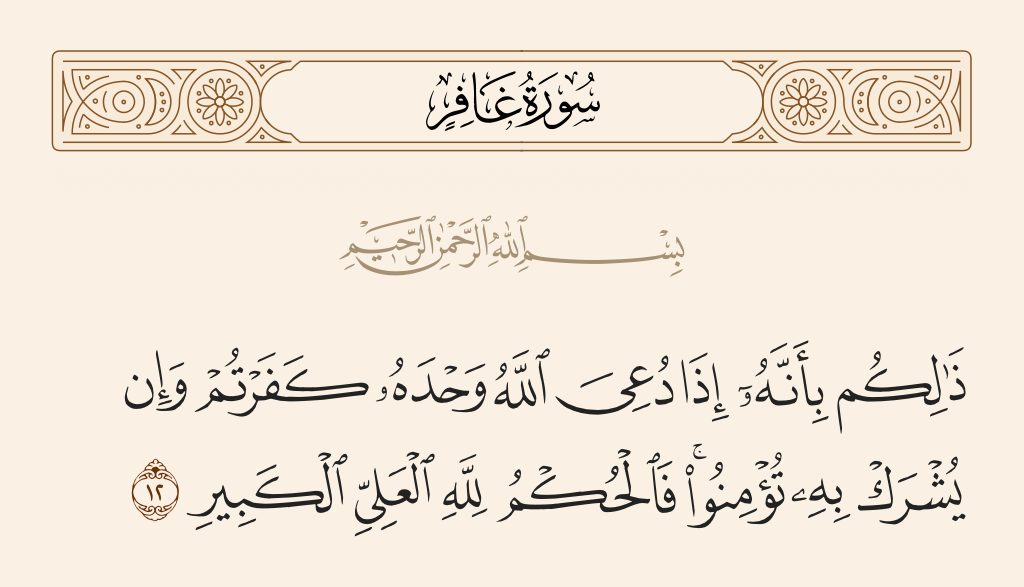 سُورَةُ غَافِرٍ
بِسْمِ ٱللَّهِ ٱلرَّحْمَٰنِ ٱلرَّحِيمِ
ذَٰلِكُم بِأَنَّهُۥٓ إِذَا دُعِىَ ٱللَّهُ وَحْدَهُۥ كَفَرْتُمْ وَإِن
يُشْرَكْ بِهِۦ تُؤْمِنُوا۟ ۚ فَٱلْحُكْمُ لِلَّهِ ٱلْعَلِىِّ ٱلْكَبِيرِ ١٢